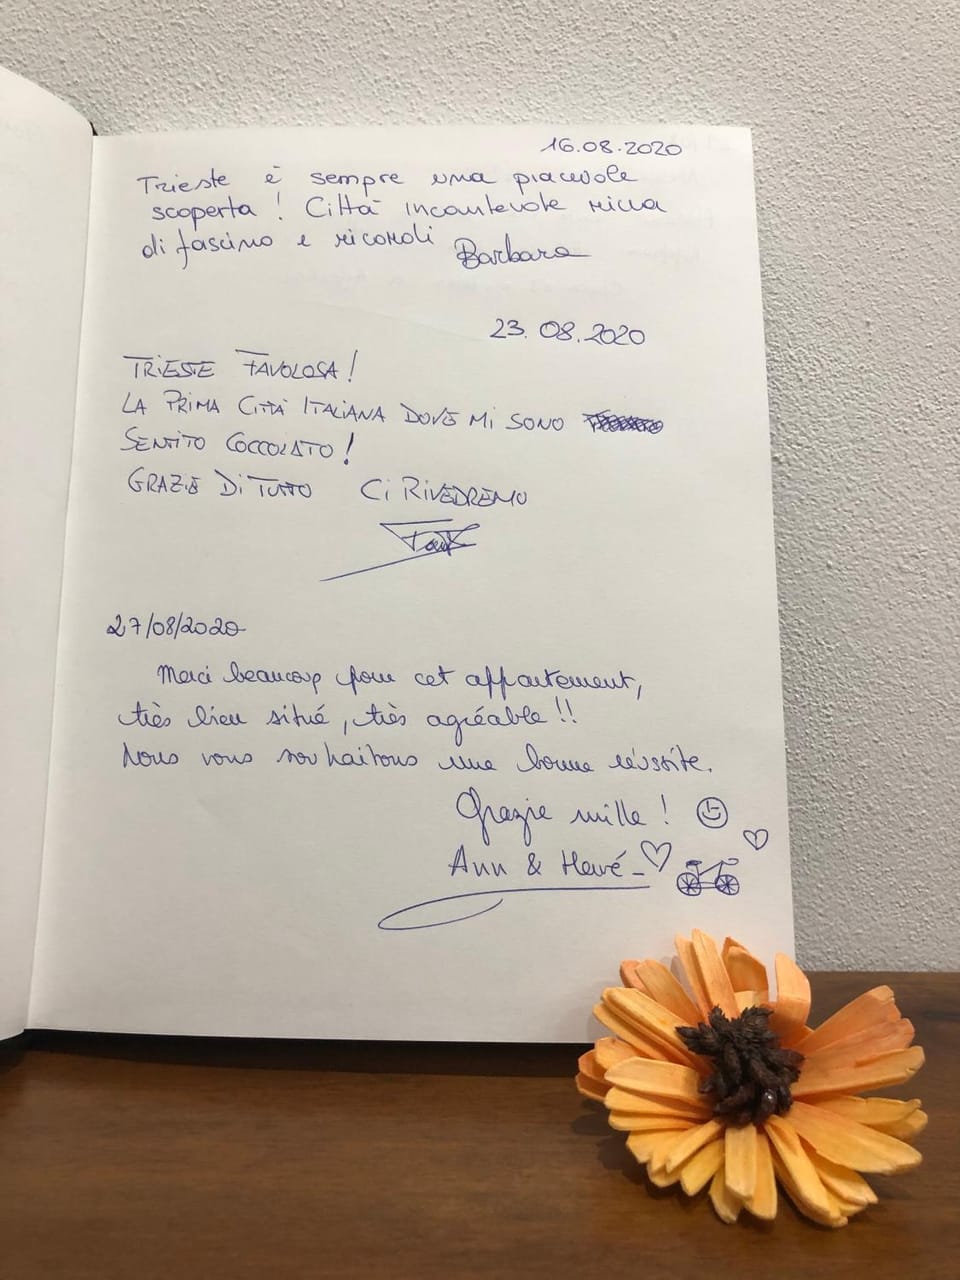 16.08.2020
Trieste è sempre una piacevole
scoperta! Città incantevole ricca
di fascino e ricordi
Barbara
23.08.2020
TRIESTE FAVOLOSA!
LA PRIMA CITTÀ ITALIANA DOVE MI SONO
SENTITO COCCOLATO!
GRAZIE DI TUTTO CI RIVEDREMO
27/08/2020
Merci beaucoup pour cet appartement,
très bien situé, très agréable!!
Nous vous souhaitons une bonne réussite.
Grazie mille!
Ann & Hervé